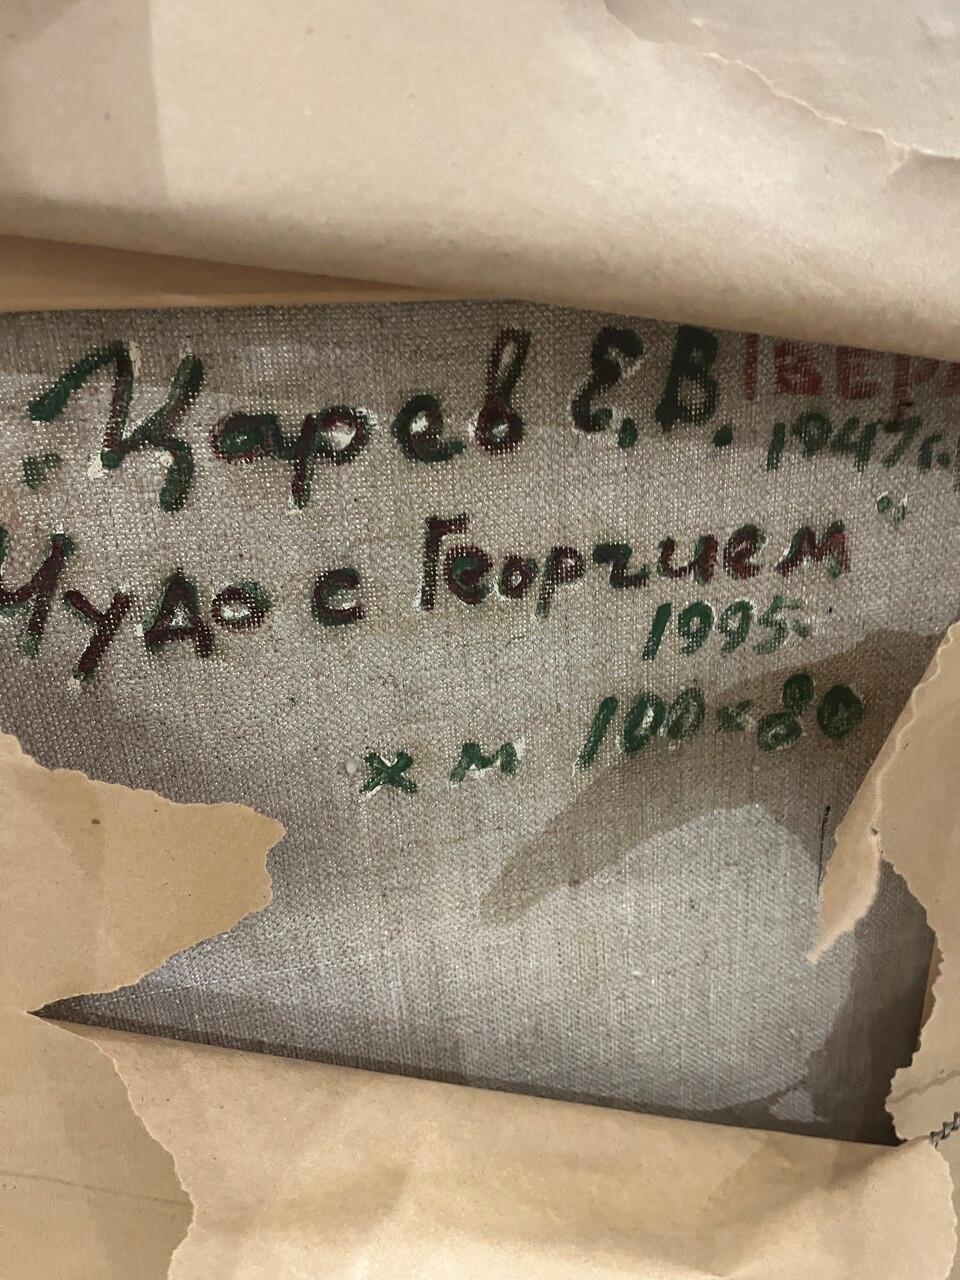 Карев Е.В. ТВЕР
1947г.
"Чудо с Георгием"
1995г
х м 100x80